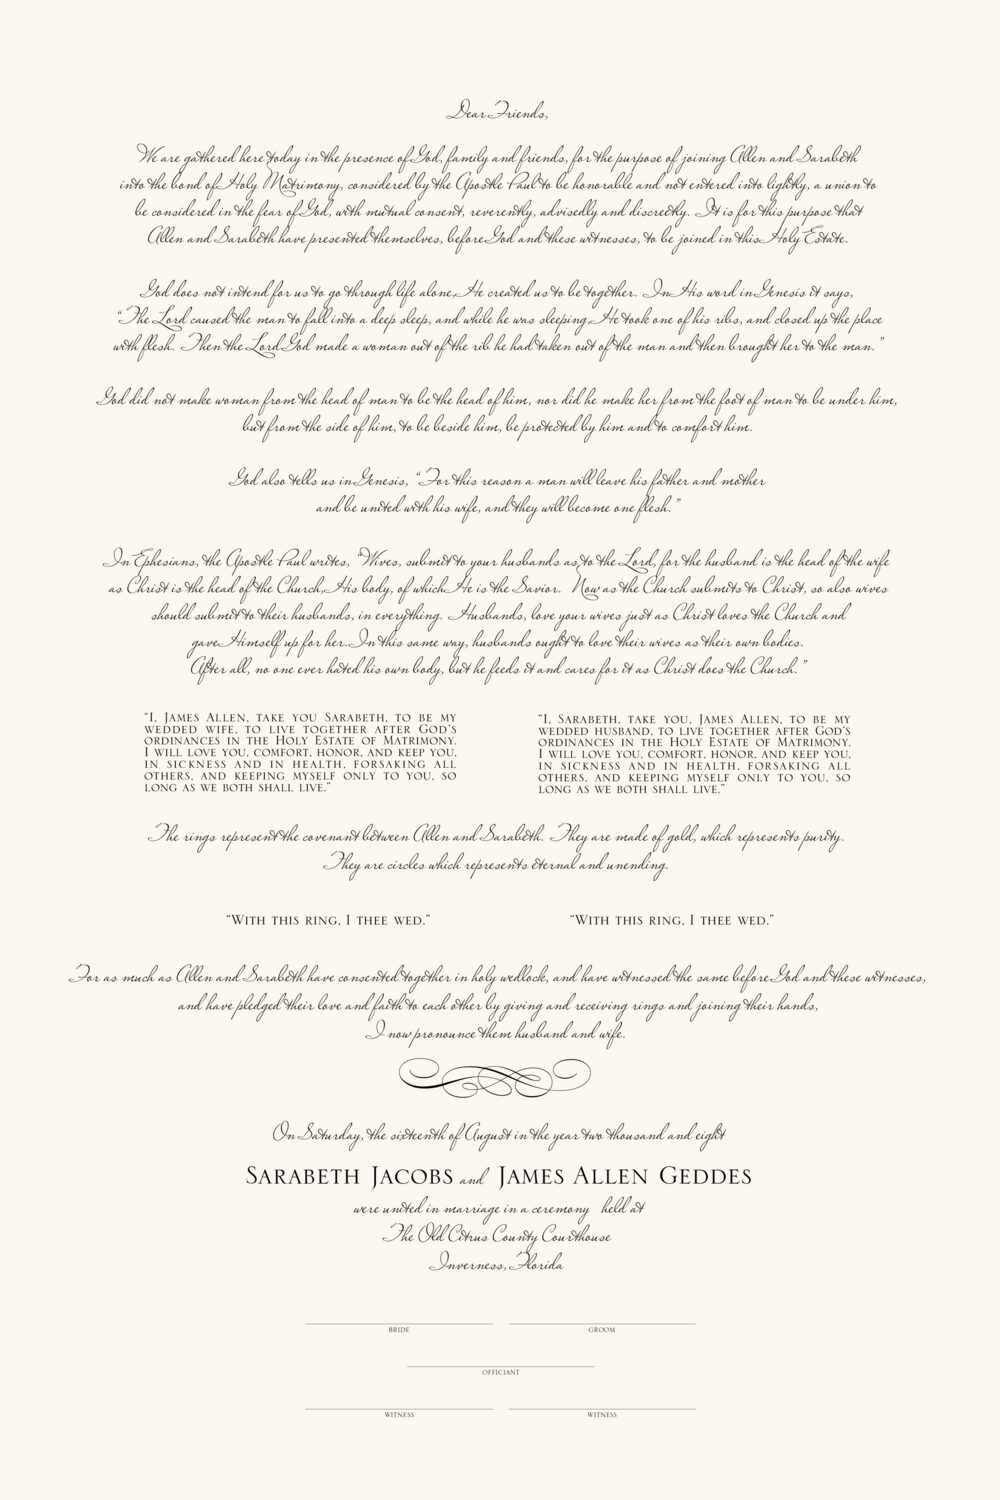 Dear Friends,
We are gathered here today in the presence of God, family and friends, for the purpose of joining Allen and Sarabeth
into the bond of Holy Matrimony, considered by the Apostle Paul to be honorable and not entered into lightly, a union to
be considered in the fear of God, with mutual consent, reverently, advisedly and discreetly. It is for this purpose that
Allen and Sarabeth have presented themselves, before God and these witnesses, to be joined in this Holy Estate.
God does not intend for us to go through life alone, He created us to be together. In His word in Genesis it says,
“The Lord caused the man to fall into a deep sleep, and while he was sleeping, He took one of his ribs, and closed up the place
with flesh. Then the Lord God made a woman out of the rib he had taken out of the man and then brought her to the man.”
God did not make woman from the head of man to be the head of him, nor did he make her from the foot of man to be under him,
but from the side of him, to be beside him, be protected by him and to comfort him.
God also tells us in Genesis, “For this reason a man will leave his father and mother
and be united with his wife, and they will become one flesh.”
In Ephesians, the Apostle Paul writes, “Wives, submit to your husbands as, to the Lord, for the husband is the head of the wife
as Christ is the head of the Church, His body, of which He is the Savior. Now as the Church submits to Christ, so also wives
should submit to their husbands, in everything. Husbands, love your wives just as Christ loves the Church and
gave Himself up for her. In this same way, husbands ought to love their wives as their own bodies.
After all, no one ever hated his own body, but he feeds it and cares for it as Christ does the Church.”
“I, James Allen, take you Sarabeth, to be my
wedded wife, to live together after God’s
ordinances in the Holy Estate of Matrimony.
I will love you, comfort, honor, and keep you,
in sickness and in health, forsaking all
others, and keeping myself only to you, so
long as we both shall live.”
“I, Sarabeth, take you, James Allen, to be my
wedded husband, to live together after God’s
ordinances in the Holy Estate of Matrimony.
I will love you, comfort, honor, and keep you,
in sickness and in health, forsaking all
others, and keeping myself only to you, so
long as we both shall live.”
The rings represent the covenant between Allen and Sarabeth. They are made of gold, which represents purity.
They are circles which represents eternal and unending.
“With this ring, I thee wed.”
“With this ring, I thee wed.”
For as much as Allen and Sarabeth have consented together in holy wedlock, and have witnessed the same before God and these witnesses,
and have pledged their love and faith to each other by giving and receiving rings and joining their hands,
I now pronounce them husband and wife.
On Saturday, the sixteenth of August in the year two thousand and eight
Sarabeth Jacobs and James Allen Geddes
were united in marriage in a ceremony held at
The Old Citrus County Courthouse
Inverness, Florida
BRIDE
GROOM
OFFICIANT
WITNESS
WITNESS